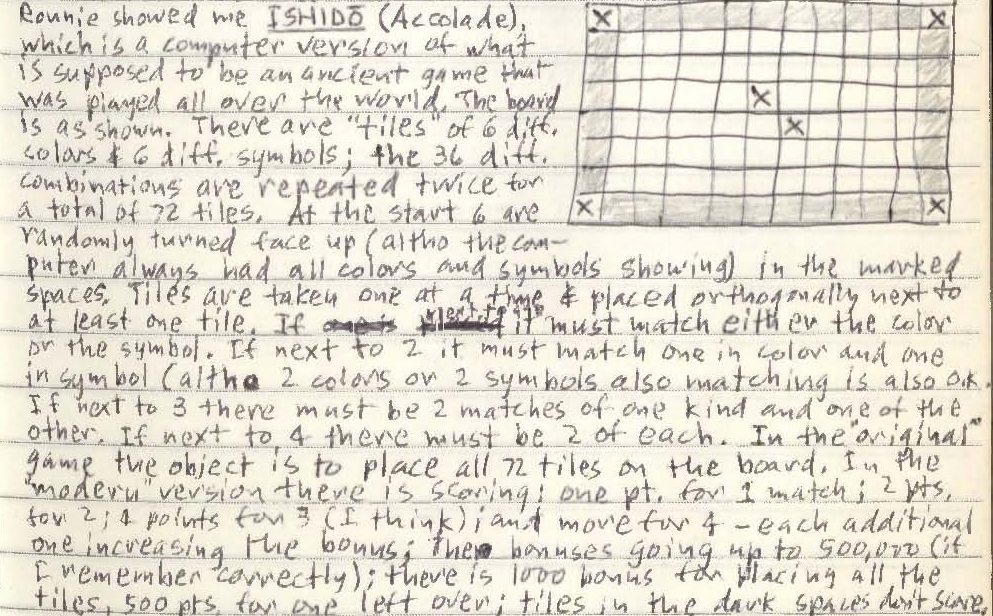 Ronnie showed me ISHIDŌ (Accolade),
which is a computer version of what
is supposed to be an ancient game that
was played all over the world. The board
is as shown. There are "tiles" of 6 diff.
colors & 6 diff. symbols; the 36 diff.
combinations are repeated twice for
a total of 72 tiles. At the start 6 are
randomly turned face up (altho the com-
puter always had all colors and symbols showing) in the marked
spaces. Tiles are taken one at a time & placed orthogonally next to
at least one tile. If next to 1 it must match either the color
or the symbol. If next to 2 it must match one in color and one
in symbol (altho 2 colors or 2 symbols also matching is also o.k.
If next to 3 there must be 2 matches of one kind and one of the
other. If next to 4 there must be 2 of each. In the "original"
game the object is to place all 72 tiles on the board. In the
"modern" version there is scoring: one pt. for 1 match; 2 pts.
for 2; 4 points for 3 (I think); and more for 4 - each additional
one increasing the bonus; the bonuses going up to 500,000 (if
I remember correctly); there is 1000 bonus for placing all the
tiles, 500 pts. for one left over; tiles in the dark spaces don't score.
X X
X
X
X X